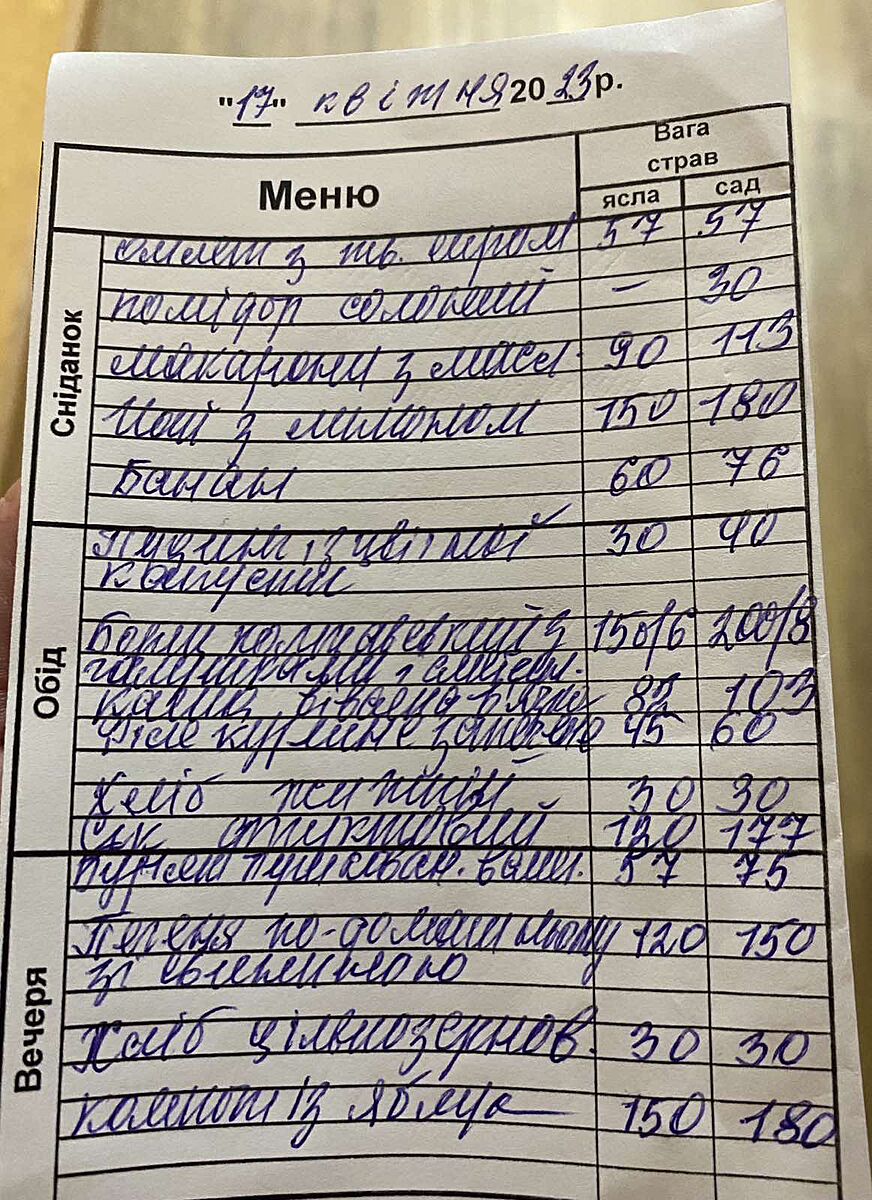 "17" квітня 2023р.
Меню Вага страв
ясла сад
Сніданок
омлет з тв. сиром 57 57
помідор солоний – 30
макарони з масл. 90 113
Чай з лимоном 150 180
Банан 60 76
Обід
із цвітної 30 40
капусти
Борщ полтавський з 150/6 200/8
галушками і смет.
каша вівсяна в'язка 82 103
філе куряче запечене 45 60
Хліб житній 30 30
Сік фруктовий 120 177
Вечеря
57 75
Печеня по-домашньому 120 150
зі свининою
Хліб цільнозернов. 30 30
компот із яблук 150 180